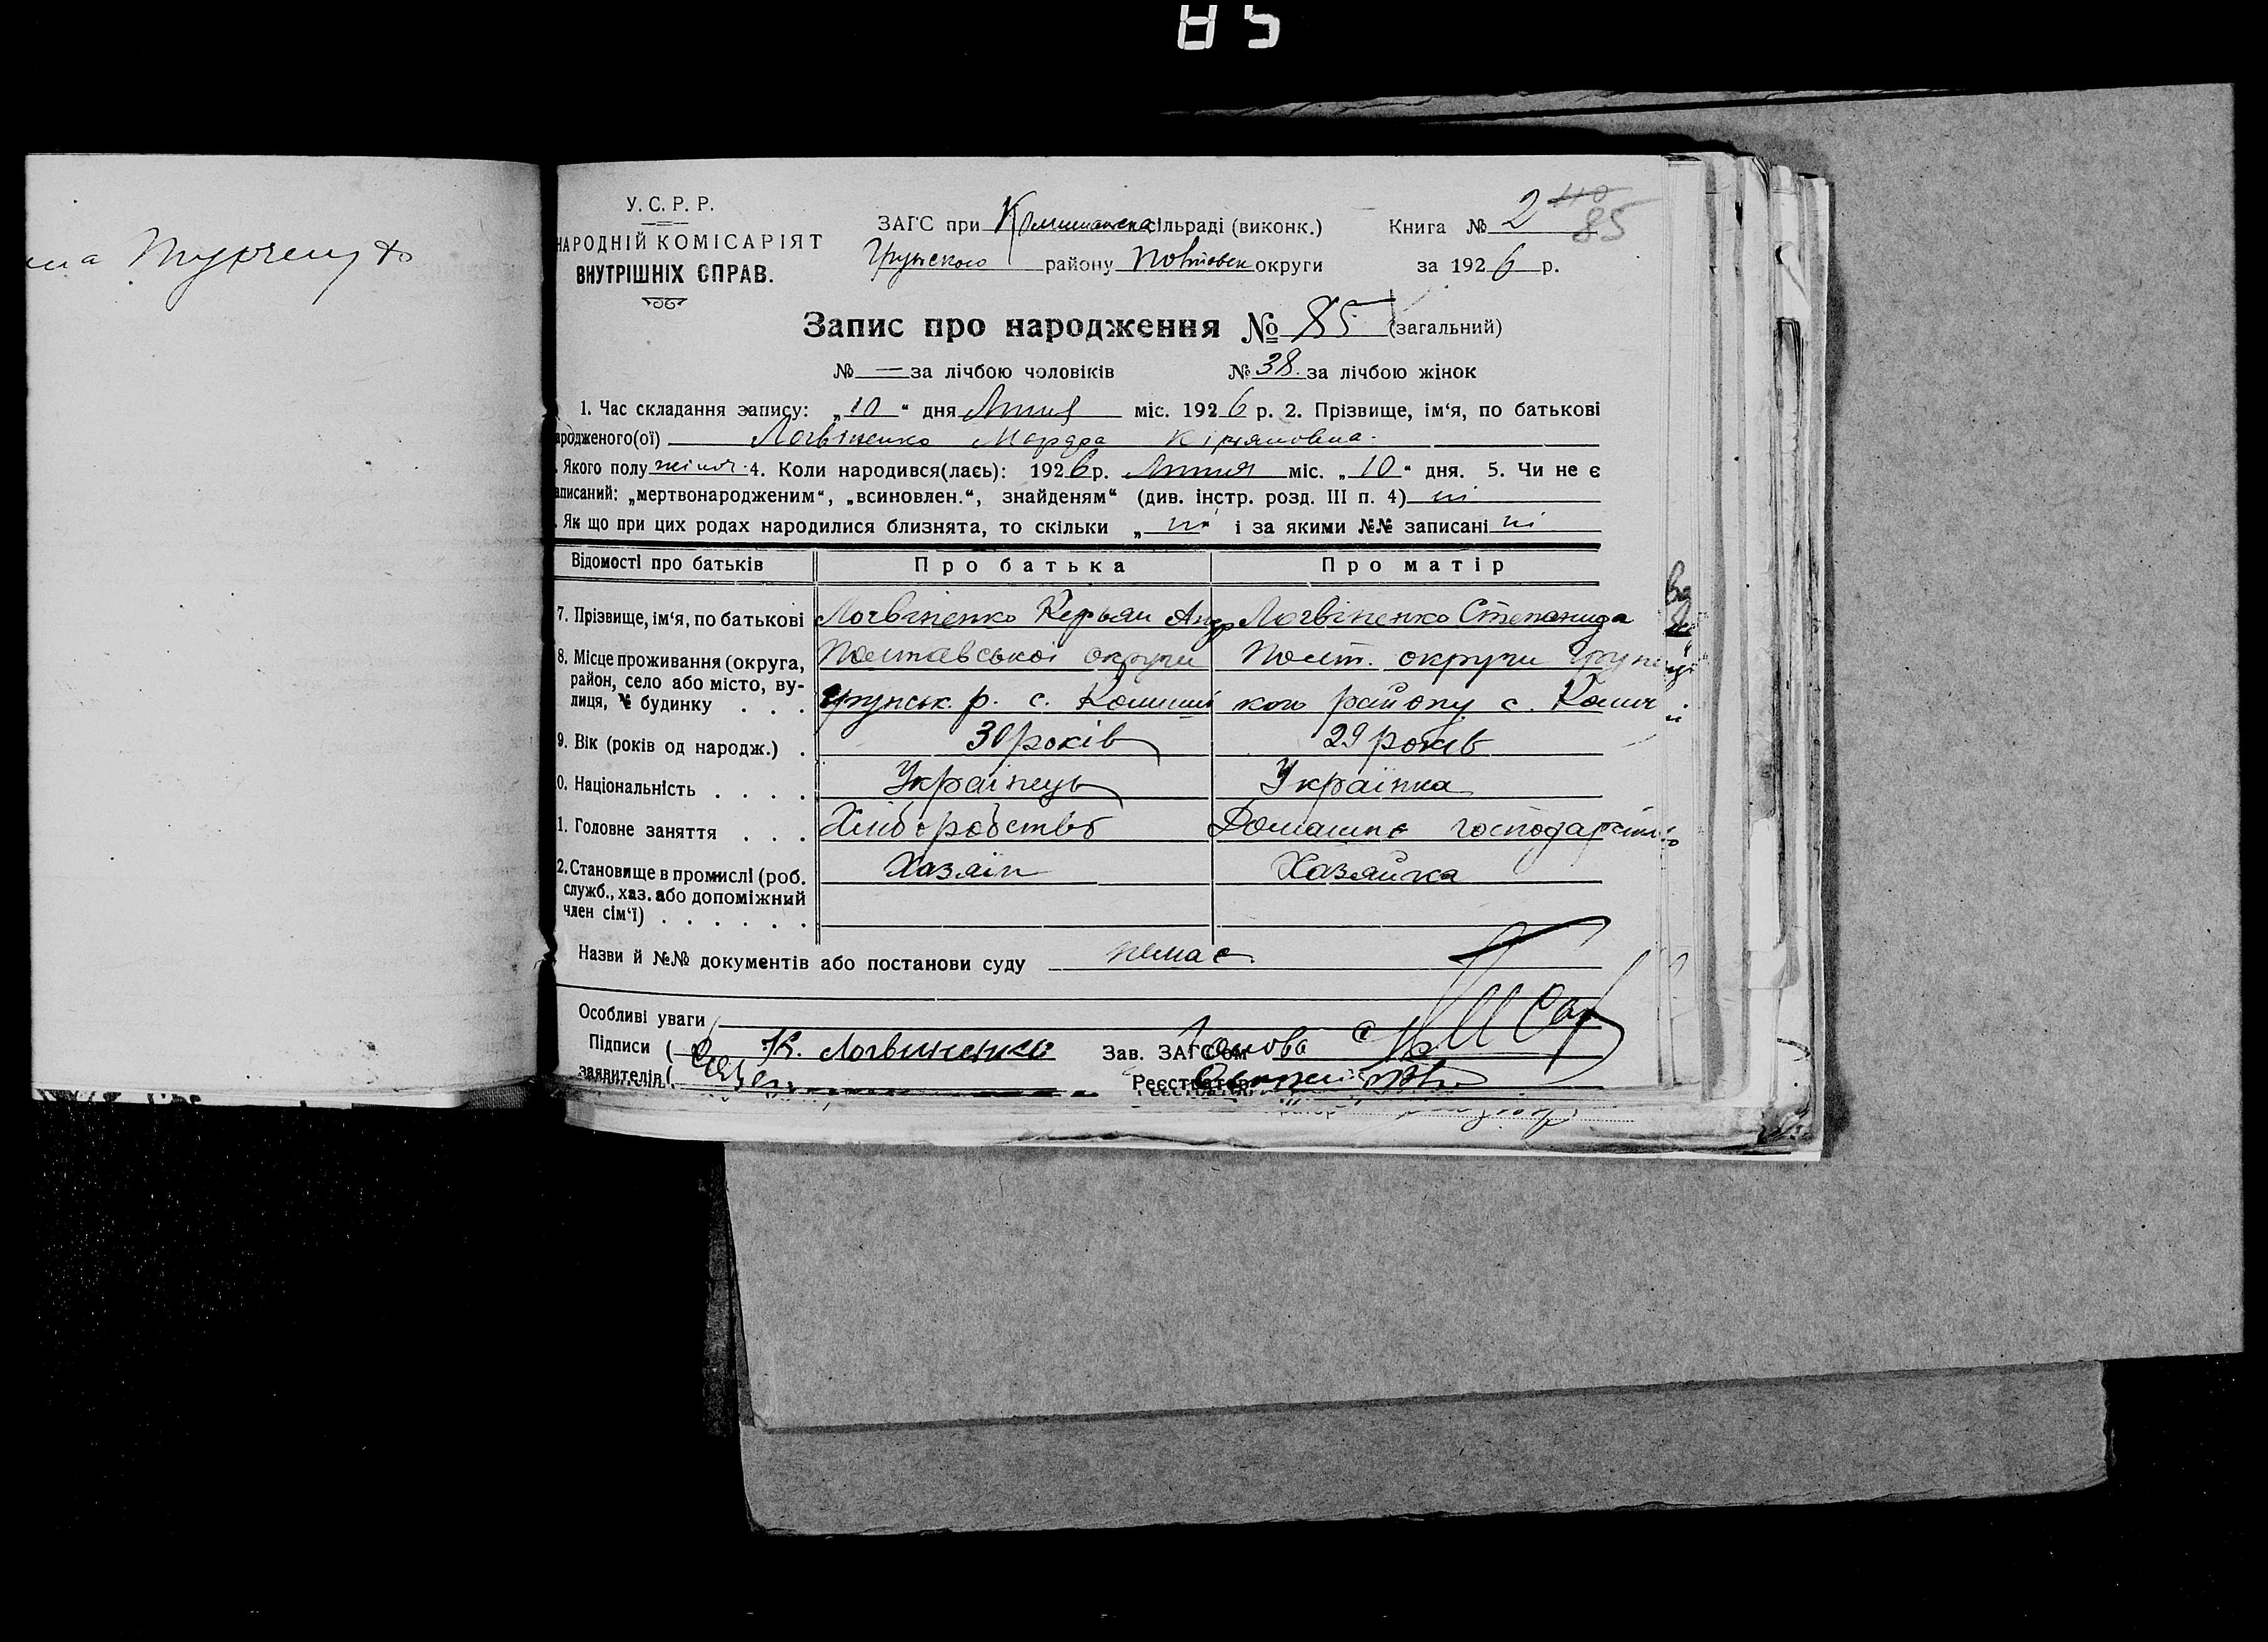 85
У.С.Р.Р.
НАРОДНІЙ КОМІСАРІЯТ
ВНУТРІШНІХ СПРАВ.
ЗАГС при сільраді (виконк.)
Грунського району Полтавськ округи
Книга № 2 110
85
за 1926 р.
Запис про народження № 85 (загальний)
№ — за лічбою чоловіків № 38. за лічбою жінок
1. Час складання запису: „10“ дня Липня міс. 1926 р. 2. Прізвище, ім‘я, по батькові
ародженого(ої) Логвіненко Кіріяновна.
. Якого полу жіноч. 4. Коли народився(лаєь): 1926 р. Липня міс. „10“ дня. 5. Чи не є
аписаний: „мертвонародженим“, „всиновлен.“, знайденям“ (див. інстр. розд. III п. 4) ні
. Як що при цих родах народилися близнята, то скільки „ні“ і за якими №№ записані ні
Відомості про батьків Про батька Про матір
7. Прізвище, ім‘я, по батькові Логвіненко Керьян Анд Логвіненко Степанида
8. Місце проживання (округа, район, село або місто, ву-лиця, № будинку . . . Полтавської округи Полт. округи Грунс
грунськ. р. с. Комиші кого району с. Комиш
9. Вік (років од народж.) . 30 років 29 років
0. Національність . . . . Українець Українка
1. Головне заняття . . . Хліборобство Домашнє господарство
2. Становище в промислі (роб. служб., хаз. або допоміжний член сім‘ї) . . . . . . Хазяїн Хазяйка
Назви й №№ документів або постанови суду немає
Особливі уваги
Підписи ( К. Логвиненко Зав. ЗАГС‘ом Голова
заявителів ( Реєстратор